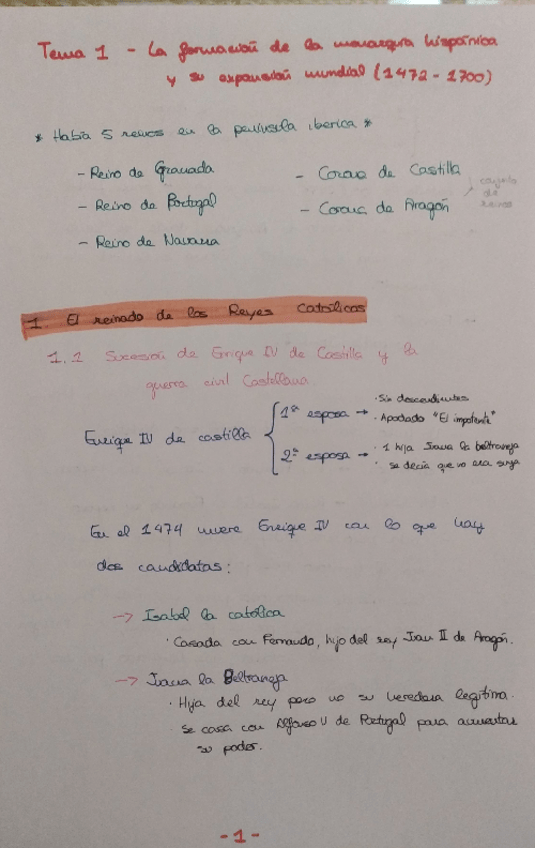 Tema 1 - La formación de la monarquía hispánica
y su expansión mundial (1472 - 1700)
* Había 5 reinos en la península iberica *
- Reino de Granada
- Reino de Portugal
- Reino de Navarra
- Corona de Castilla
- Corona de Aragón
conjunto
de
reinos
1. El reinado de los Reyes Católicos
1.1 Sucesión de Enrique IV de Castilla y la
guerra civil Castellana
Enrique IV de castilla
1ª esposa →
· Sin descendientes
· Apodado "El impotente"
2ª esposa →
· 1 hija Juana la beltraneja
· se decía que no era suya
En el 1474 muere Enrique IV con lo que hay
dos candidatas:
→ Isabel la católica
· Casada con Fernando, hijo del rey Juan II de Aragón.
→ Juana la Beltraneja
· Hija del rey pero no su heredera legítima.
· Se casa con Alfonso V de Portugal para aumentar
su poder.
- 1 -